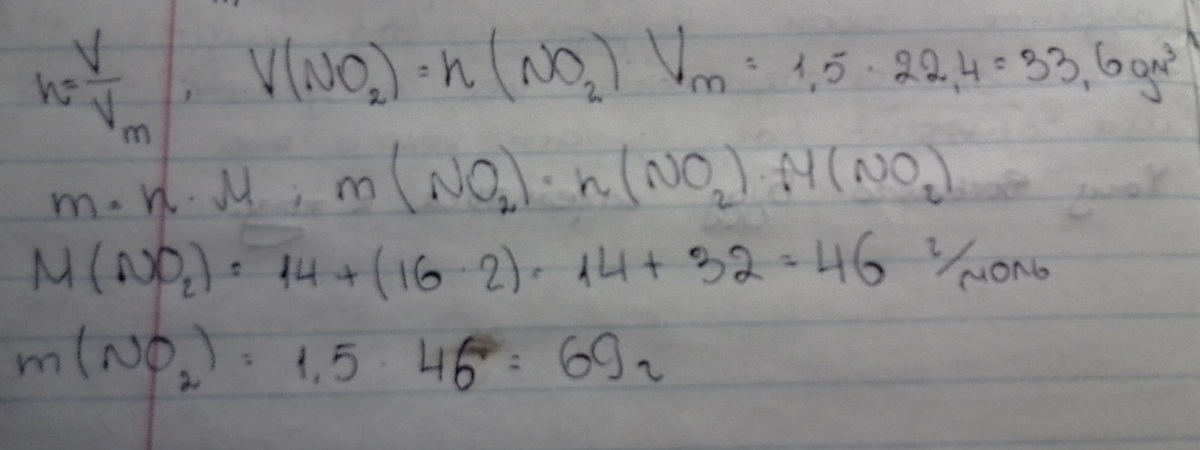 n = V/Vm ; V(NO₂) = n(NO₂) · Vm = 1,5 · 22,4 = 33,6 дм³
m = n · M ; m(NO₂) = n(NO₂) · M(NO₂)
M(NO₂) = 14 + (16 · 2) = 14 + 32 = 46 г/моль
m(NO₂) = 1,5 · 46 = 69 г